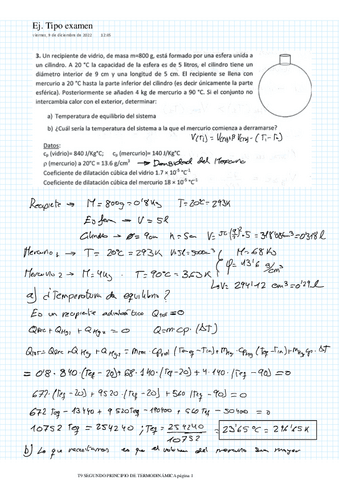 Ej. Tipo examen
viernes, 9 de diciembre de 2022 12:05
3. Un recipiente de vidrio, de masa m=800 g, está formado por una esfera unida a
un cilindro. A 20 °C la capacidad de la esfera es de 5 litros, el cilindro tiene un
diámetro interior de 9 cm y una longitud de 5 cm. El recipiente se llena con
mercurio a 20 °C hasta la parte inferior del cilindro (es decir únicamente la parte
esférica). Posteriormente se añaden 4 kg de mercurio a 90 °C. Si el conjunto no
intercambia calor con el exterior, determinar:
a) Temperatura de equilibrio del sistema
b) ¿Cuál sería la temperatura del sistema a la que el mercurio comienza a derramarse?
Datos:
cp (vidrio)= 840 J/Kg°C; cp (mercurio)= 140 J/Kg°C
ρ (mercurio) a 20°C = 13.6 g/cm³ → Densidad del Mercurio
Coeficiente de dilatación cúbica del vidrio 1.7 × 10⁻⁵ °C⁻¹
Coeficiente de dilatación cúbica del mercurio 18 × 10⁻⁵ °C⁻¹
Recipiente → M = 800g = 0'8 Kg T = 20°C = 293K
Esfera → V = 5l
Mercurio 1 → T = 20°C = 293K V=5l=5000cm³ M = 68 Kg
Mercurio 2 → M = 4Kg T = 90°C = 363K
ρ = 13'6 g/cm³
a) ¿Temperatura de equilibrio?
Es un recipiente adiabático Qtot = 0
Qrec + QHg1 + QHg2 = 0 Q = m·cp·(ΔT)
= 0'8 · 840 · (Teq - 20) + 68 · 140 · (Teq - 20) + 4 · 140 · (Teq - 90) = 0
672 · (Teq - 20) + 9520 (Teq - 20) + 560 (Teq - 90) = 0
672 Teq - 13440 + 9520 Teq - 190400 + 560 Teq - 50400 = 0
10752 Teq = 254240 ; Teq = 254240 / 10752 = 23'65°C = 296'65K
b) Lo que necesitamos es que el volumen del mercurio sea mayor
T9 SEGUNDO PRINCIPIO DE TERMODINÁMICA página 1